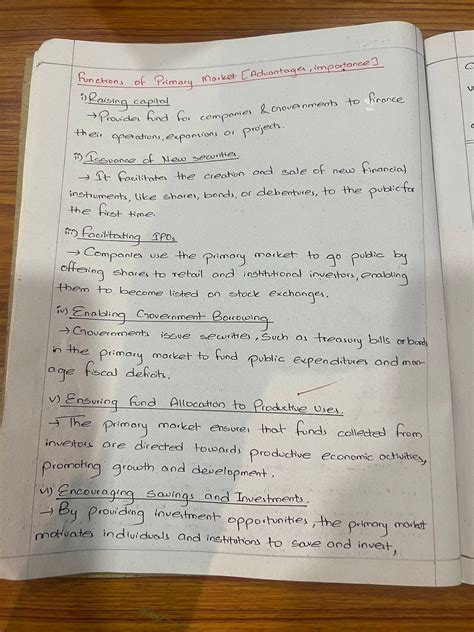 Functions of Primary Market [Advantages, importance]
i) Raising capital
→ Provides fund for companies & Governments to finance
their operations, expansions or projects.
ii) Issuance of New securities.
→ It facilitates the creation and sale of new financial
instruments, like shares, bonds, or debentures, to the public for
the first time.
iii) Facilitating IPOs
→ Companies use the primary market to go public by
offering shares to retail and institutional investors, enabling
them to become listed on stock exchanges.
iv) Enabling Government Borrowing
→ Governments issue securities, such as treasury bills or bonds
in the primary market to fund public expenditures and man-
age fiscal deficits.
v) Ensuring Fund Allocation to Productive Uses.
→ The primary market ensures that funds collected from
investors are directed towards productive economic activities,
promoting growth and development.
vi) Encouraging Savings and Investments.
→ By providing investment opportunities, the primary market
motivates individuals and institutions to save and invest,